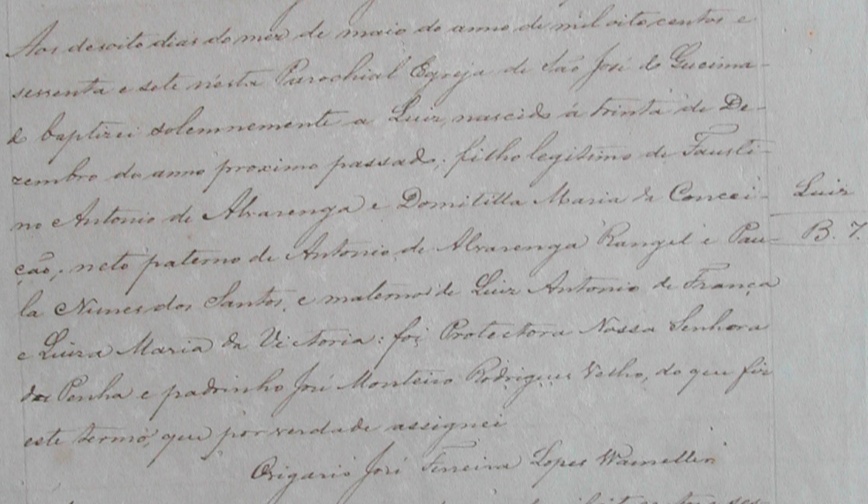 Aos desoito dias do mez de maio do anno de mil oito centos e
sessenta e sete nesta Parochial Egreja de São José do Gucima-
do baptizei solemnemente a Luiz, nascido á trinta de De-
zembro do anno proximo passado; filho legitimo de Fausti-
no Antonio de Alvarenga e Domitilla Maria da Concei-
ção, neto paterno de Antonio de Alvarenga Rangel e Pau-
la Nunes dos Santos, e materno de Luiz Antonio de França
e Luiza Maria da Victoria: foi Protectora Nossa Senhora
da Penha e padrinho José Monteiro Rodrigues Velho, do que fiz
este termo, que por verdade assignei
O vigario José Ferreira Lopes
Luiz
B. 7